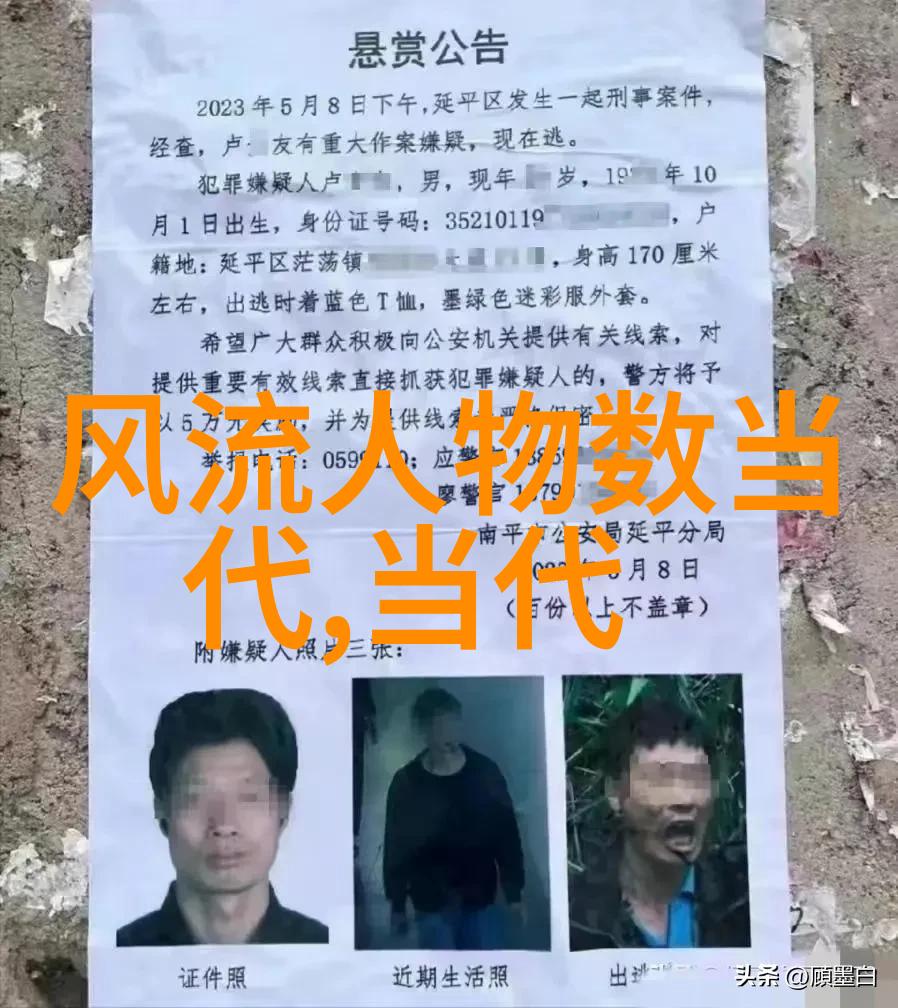 悬赏公告
2023年5月8日下午，延平区发生一起刑事案件，
经查，卢 友有重大作案嫌疑，现在逃。
犯罪嫌疑人卢 ，男，现年 岁，19 年10
月1日出生，身份证号码：35210119 ，户
籍地：延平区茫荡镇 ，身高170厘米
左右，出逃时着蓝色T恤，墨绿色迷彩服外套。
希望广大群众积极向公安机关提供有关线索，对
提供重要有效线索直接抓获犯罪嫌疑人的，警方将予
以5万元 ，并为提供线索 密
风流人物数当
举报电话：0599110；应警官
廖警官
南平市公安局延平分局
代,当代
年5月8日
（百份以上不盖章）
附嫌疑人照片三张：
证件照
近期生活照
出逃
头条 @顾墨白